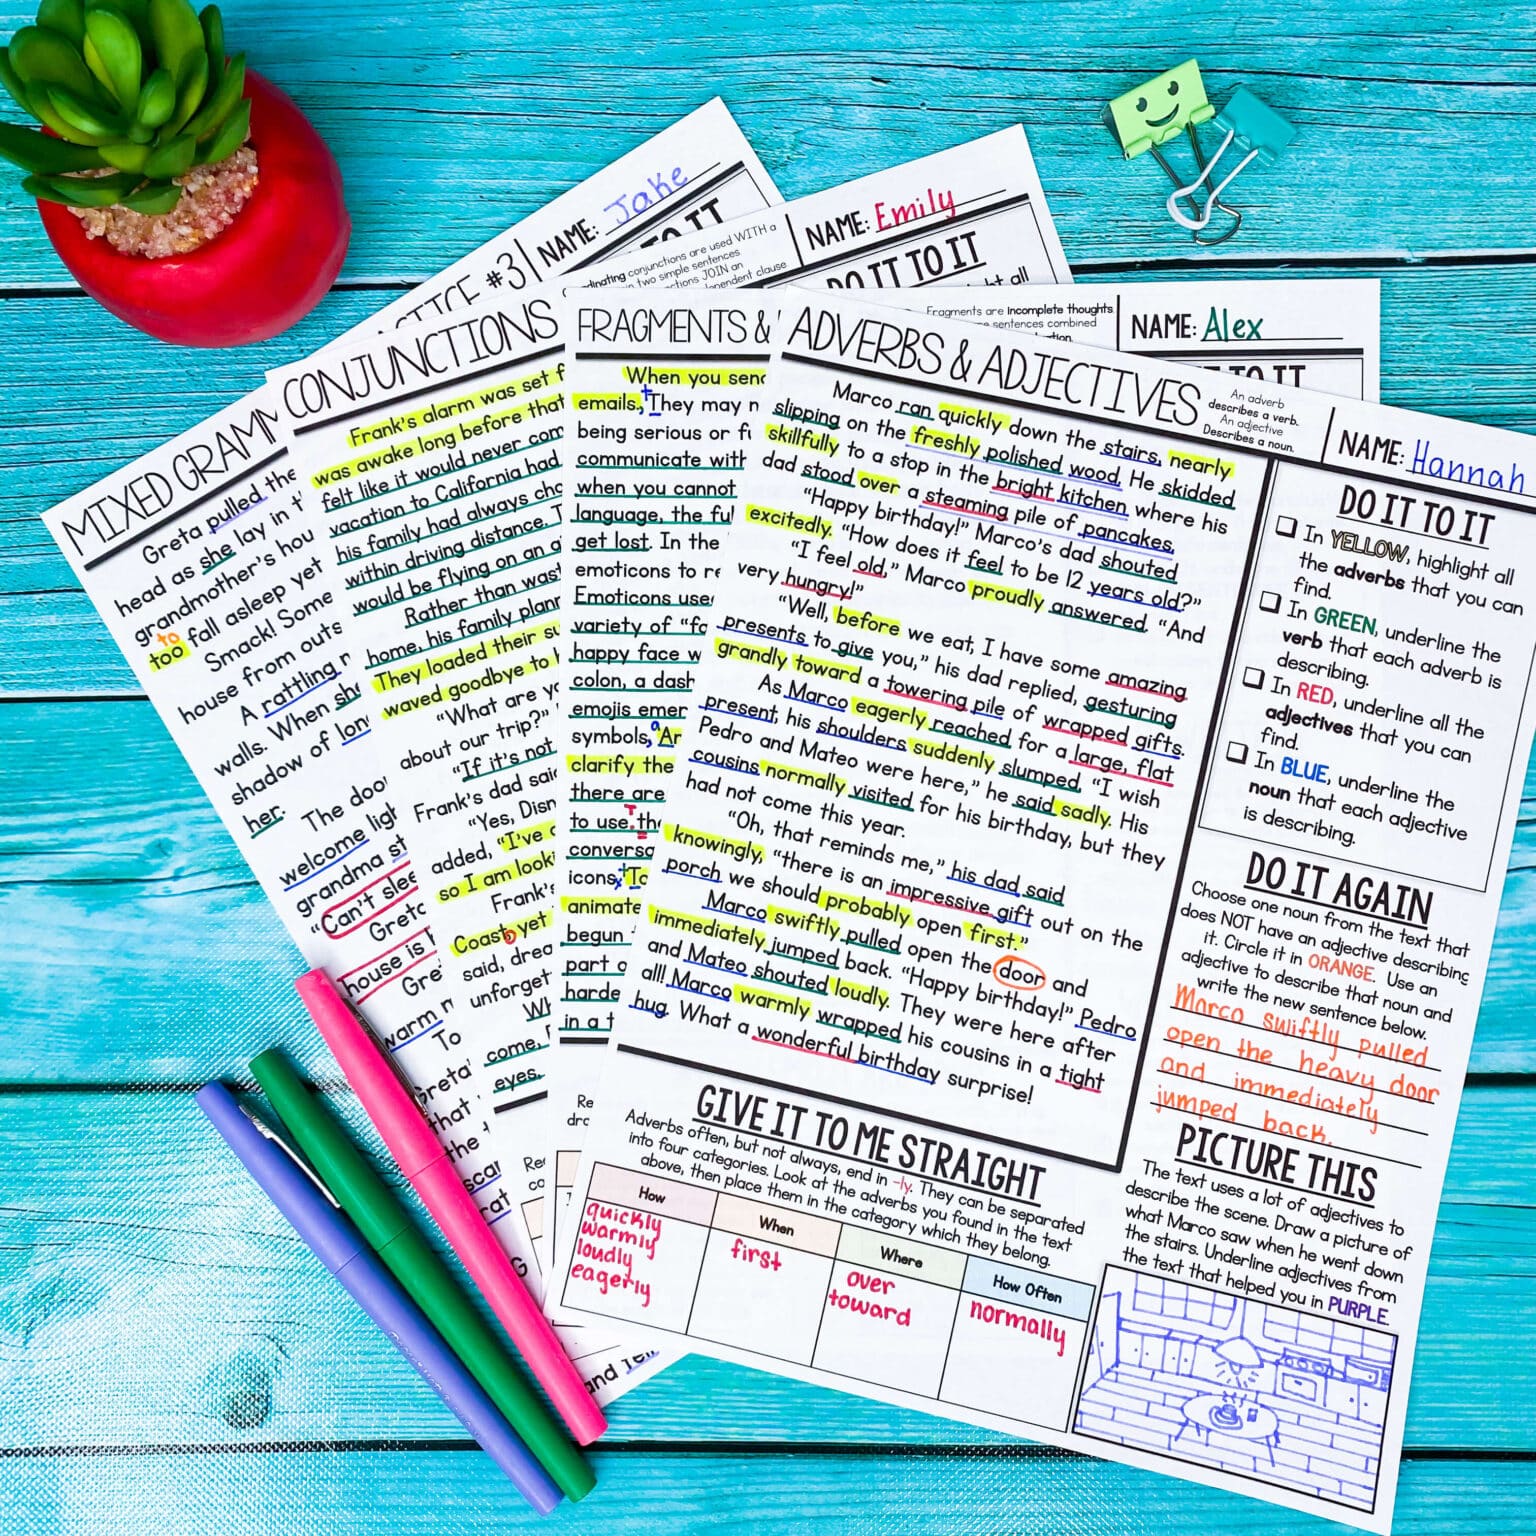 PRACTICE #3
NAME: Jake
DO IT TO IT
MIXED GRAMM
Greta pulled the
head as she lay in
grandmother's hou
to
too fall asleep yet
Smack! Some
house from outs
A rattling
walls. When she
shadow of lon
her.
The door
welcome ligh
grandma st
"Can't slee
Greta
house is
Gre
warm
To
Greta'
that
the
scar
rat
and
NAME: Emily
DO IT TO IT
conjunctions are used WITH a
in two simple sentences
JOIN an
dependent clause
CONJUNCTIONS
Frank's alarm was set f
was awake long before that
felt like it would never com
vacation to California had
his family had always cho
within driving distance. T
would be flying on an a
Rather than wast
home, his family plann
They loaded their su
waved goodbye to
"What are yo
about our trip?"
"If it's not
Frank's dad said
"Yes, Disn
added, "I've
so I am looki
Frank's
Coast yet
said, drea
unforget
Wh
come,
eyes.
NAME: Alex
Fragments are incomplete thoughts
sentences combined
FRAGMENTS &
When you send
emails, They may n
being serious or fu
communicate with
when you cannot
language, the ful
get lost. In the
emoticons to re
Emoticons use
variety of "fa
happy face w
colon, a dash
emojis emer
symbols, Ar
clarify the
there are
to use. th
conversa
icons, To
animate
begun
part o
harde
in a t
ADVERBS & ADJECTIVES
An adverb
describes a verb.
An adjective
Describes a noun.
NAME: Hannah
Marco ran quickly down the stairs, nearly
slipping on the freshly polished wood. He skidded
skillfully to a stop in the bright kitchen where his
dad stood over a steaming pile of pancakes.
"Happy birthday!" Marco's dad shouted
excitedly. "How does it feel to be 12 years old?"
"I feel old," Marco proudly answered. "And
very hungry!"
"Well, before we eat, I have some amazing
presents to give you," his dad replied, gesturing
grandly toward a towering pile of wrapped gifts.
As Marco eagerly reached for a large, flat
present, his shoulders suddenly slumped. "I wish
Pedro and Mateo were here," he said sadly. His
cousins normally visited for his birthday, but they
had not come this year.
"Oh, that reminds me," his dad said
knowingly, "there is an impressive gift out on the
porch we should probably open first."
Marco swiftly pulled open the door and
immediately jumped back. "Happy birthday!" Pedro
and Mateo shouted loudly. They were here after
all! Marco warmly wrapped his cousins in a tight
hug. What a wonderful birthday surprise!
DO IT TO IT
In YELLOW, highlight all
the adverbs that you can
find.
In GREEN, underline the
verb that each adverb is
describing.
In RED, underline all the
adjectives that you can
find.
In BLUE, underline the
noun that each adjective
is describing.
DO IT AGAIN
Choose one noun from the text that
does NOT have an adjective describing
it. Circle it in ORANGE. Use an
adjective to describe that noun and
write the new sentence below.
Marco swiftly pulled
open the heavy door
and immediately
jumped back.
PICTURE THIS
The text uses a lot of adjectives to
describe the scene. Draw a picture of
what Marco saw when he went down
the stairs. Underline adjectives from
the text that helped you in PURPLE.
GIVE IT TO ME STRAIGHT
Adverbs often, but not always, end in -ly. They can be separated
into four categories. Look at the adverbs you found in the text
above, then place them in the category which they belong.
How
quickly
warmly
loudly
eagerly
When
first
Where
over
toward
How Often
normally